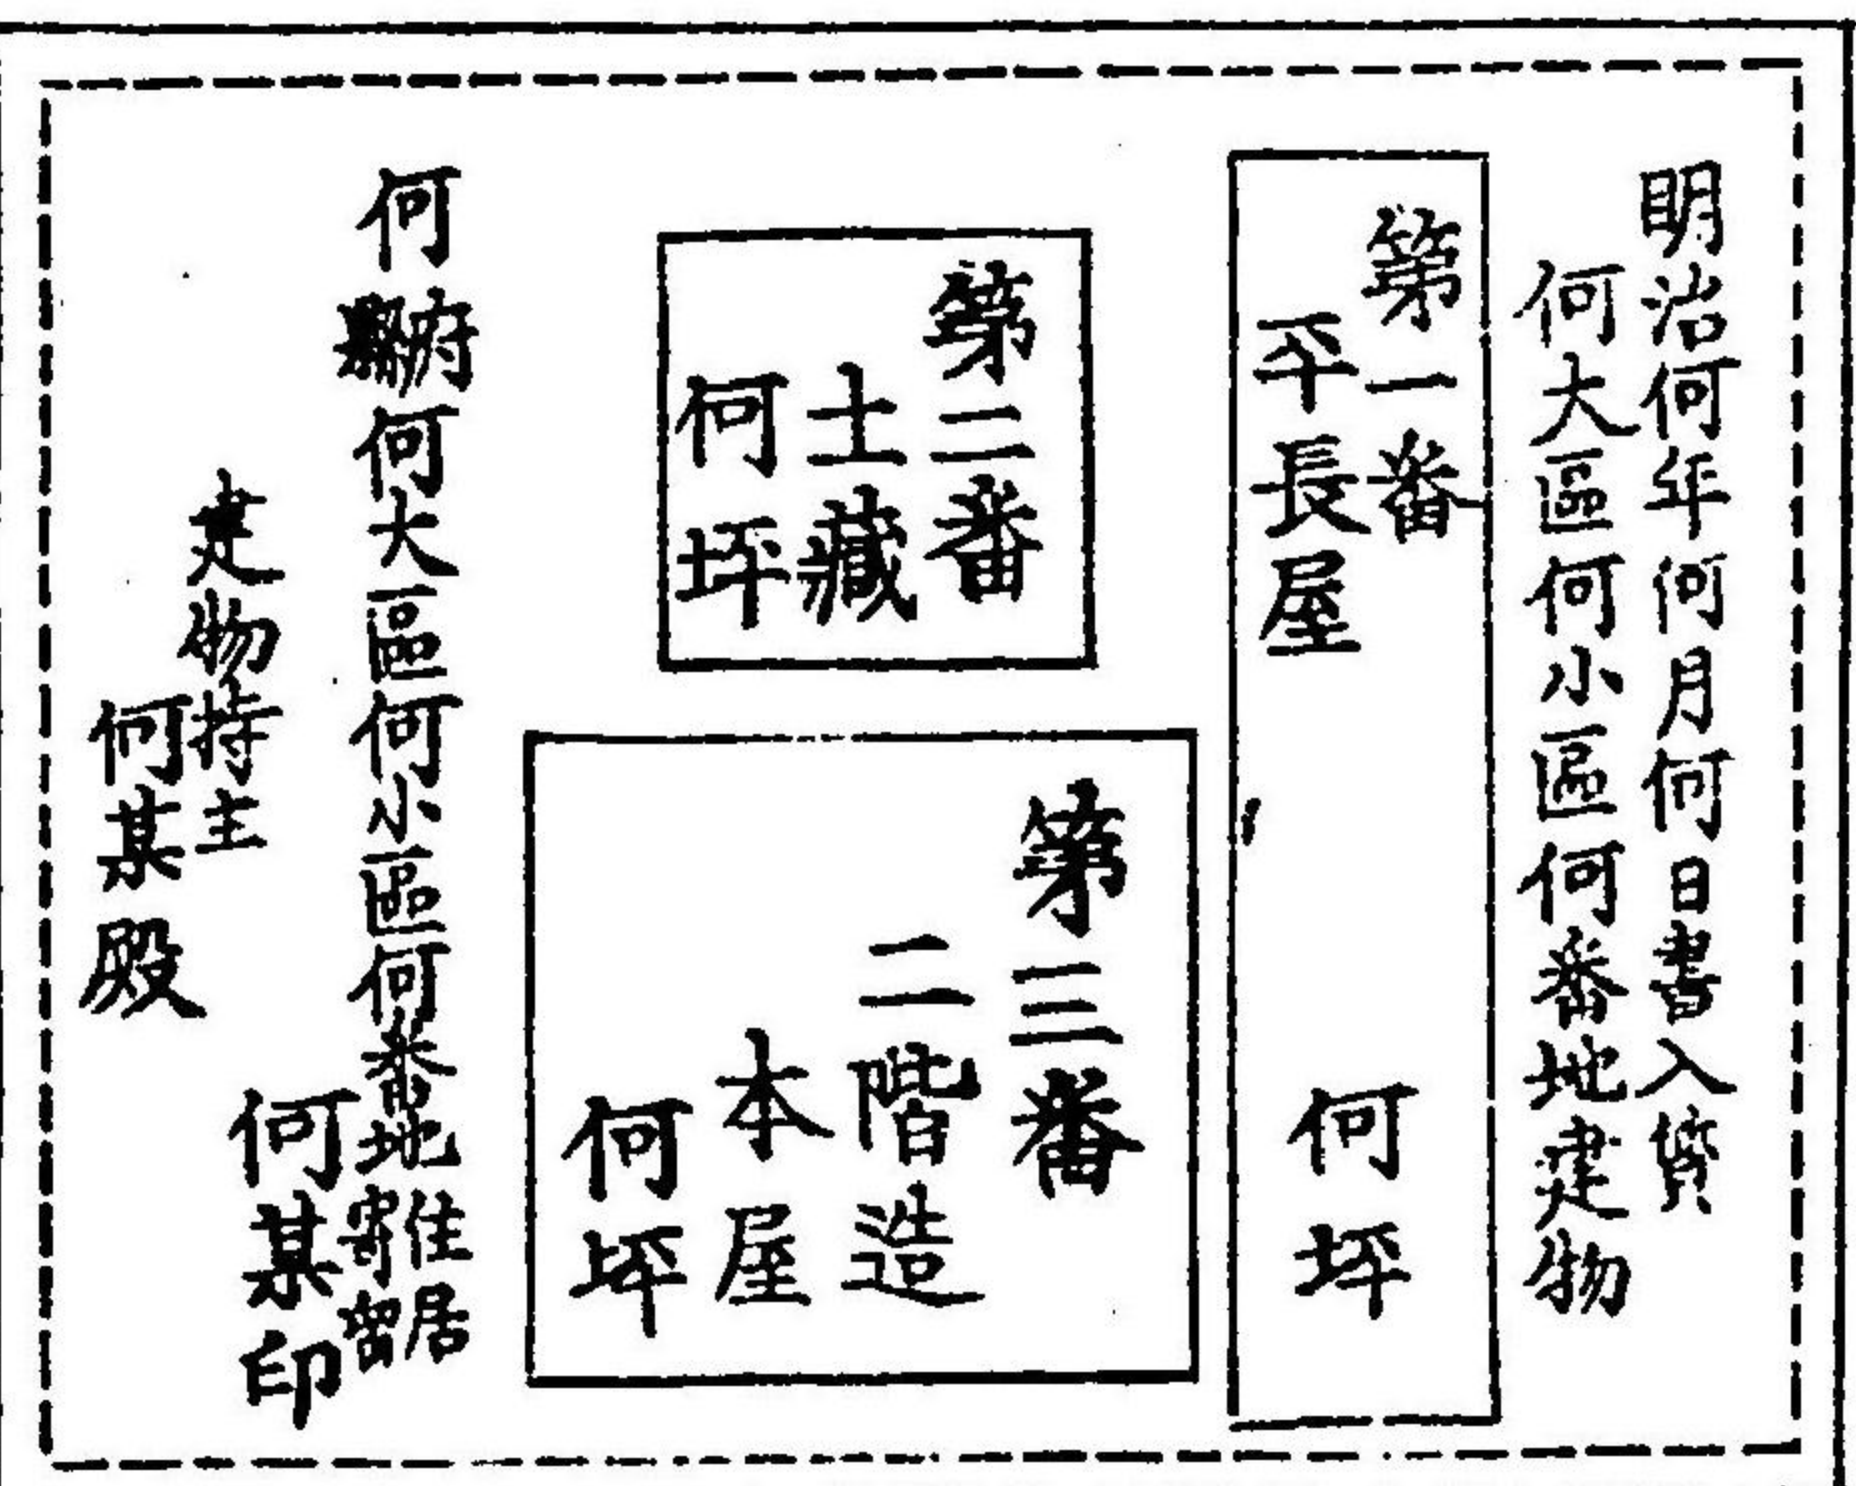 明治何年何月何日書入質
何大區何小區何番地建物
第一番
平長屋
何坪
第二番
土藏
何坪
第三番
二階造
本屋
何坪
何府縣何大區何小區何番地住居寄留
何某印
建物持主
何某殿